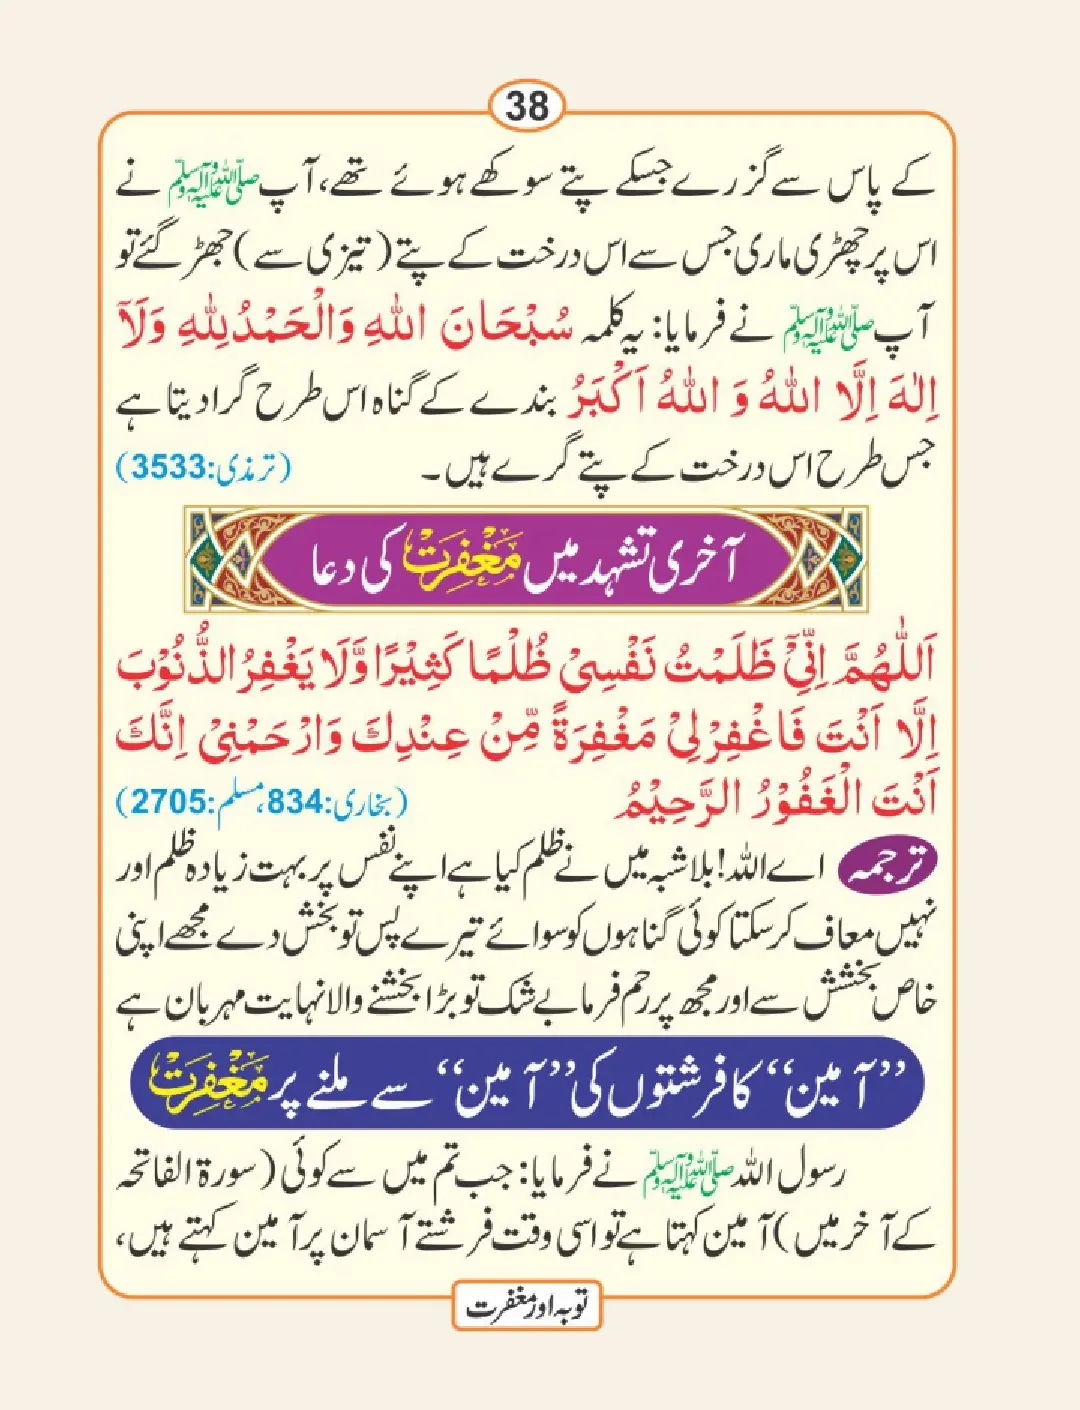 38
کے پاس سے گزرے جسکے پتے سوکھے ہوئے تھے، آپ ﷺ نے
اس پر چھڑی ماری جس سے اس درخت کے پتے (تیزی سے) جھڑ گئے تو
آپ ﷺ نے فرمایا: یہ کلمہ سُبْحَانَ اللهِ وَالْحَمْدُلِلّٰهِ وَلَآ
اِلٰهَ اِلَّا اللهُ وَ اللهُ اَكْبَرُ بندے کے گناہ اس طرح گرا دیتا ہے
جس طرح اس درخت کے پتے گرے ہیں۔ (ترمذی:3533)
آخری تشہد میں مَغْفِرَتْ کی دعا
اَللّٰهُمَّ اِنِّيْٓ ظَلَمْتُ نَفْسِيْ ظُلْمًا كَثِيْرًا وَّلَا يَغْفِرُ الذُّنُوْبَ
اِلَّا اَنْتَ فَاغْفِرْلِيْ مَغْفِرَةً مِّنْ عِنْدِكَ وَارْحَمْنِيْ اِنَّكَ
اَنْتَ الْغَفُوْرُ الرَّحِيْمُ (بخاری:834، مسلم:2705)
ترجمہ اے اللہ! بلاشبہ میں نے ظلم کیا ہے اپنے نفس پر بہت زیادہ ظلم اور
نہیں معاف کر سکتا کوئی گناہوں کو سوائے تیرے پس تو بخش دے مجھے اپنی
خاص بخشش سے اور مجھ پر رحم فرما بے شک تو بڑا بخشنے والا نہایت مہربان ہے
”آمین“ کا فرشتوں کی ”آمین“ سے ملنے پر مَغْفِرَتْ
رسول اللہ ﷺ نے فرمایا: جب تم میں سے کوئی (سورۃ الفاتحہ
کے آخر میں) آمین کہتا ہے تو اسی وقت فرشتے آسمان پر آمین کہتے ہیں،
توبہ اور مغفرت